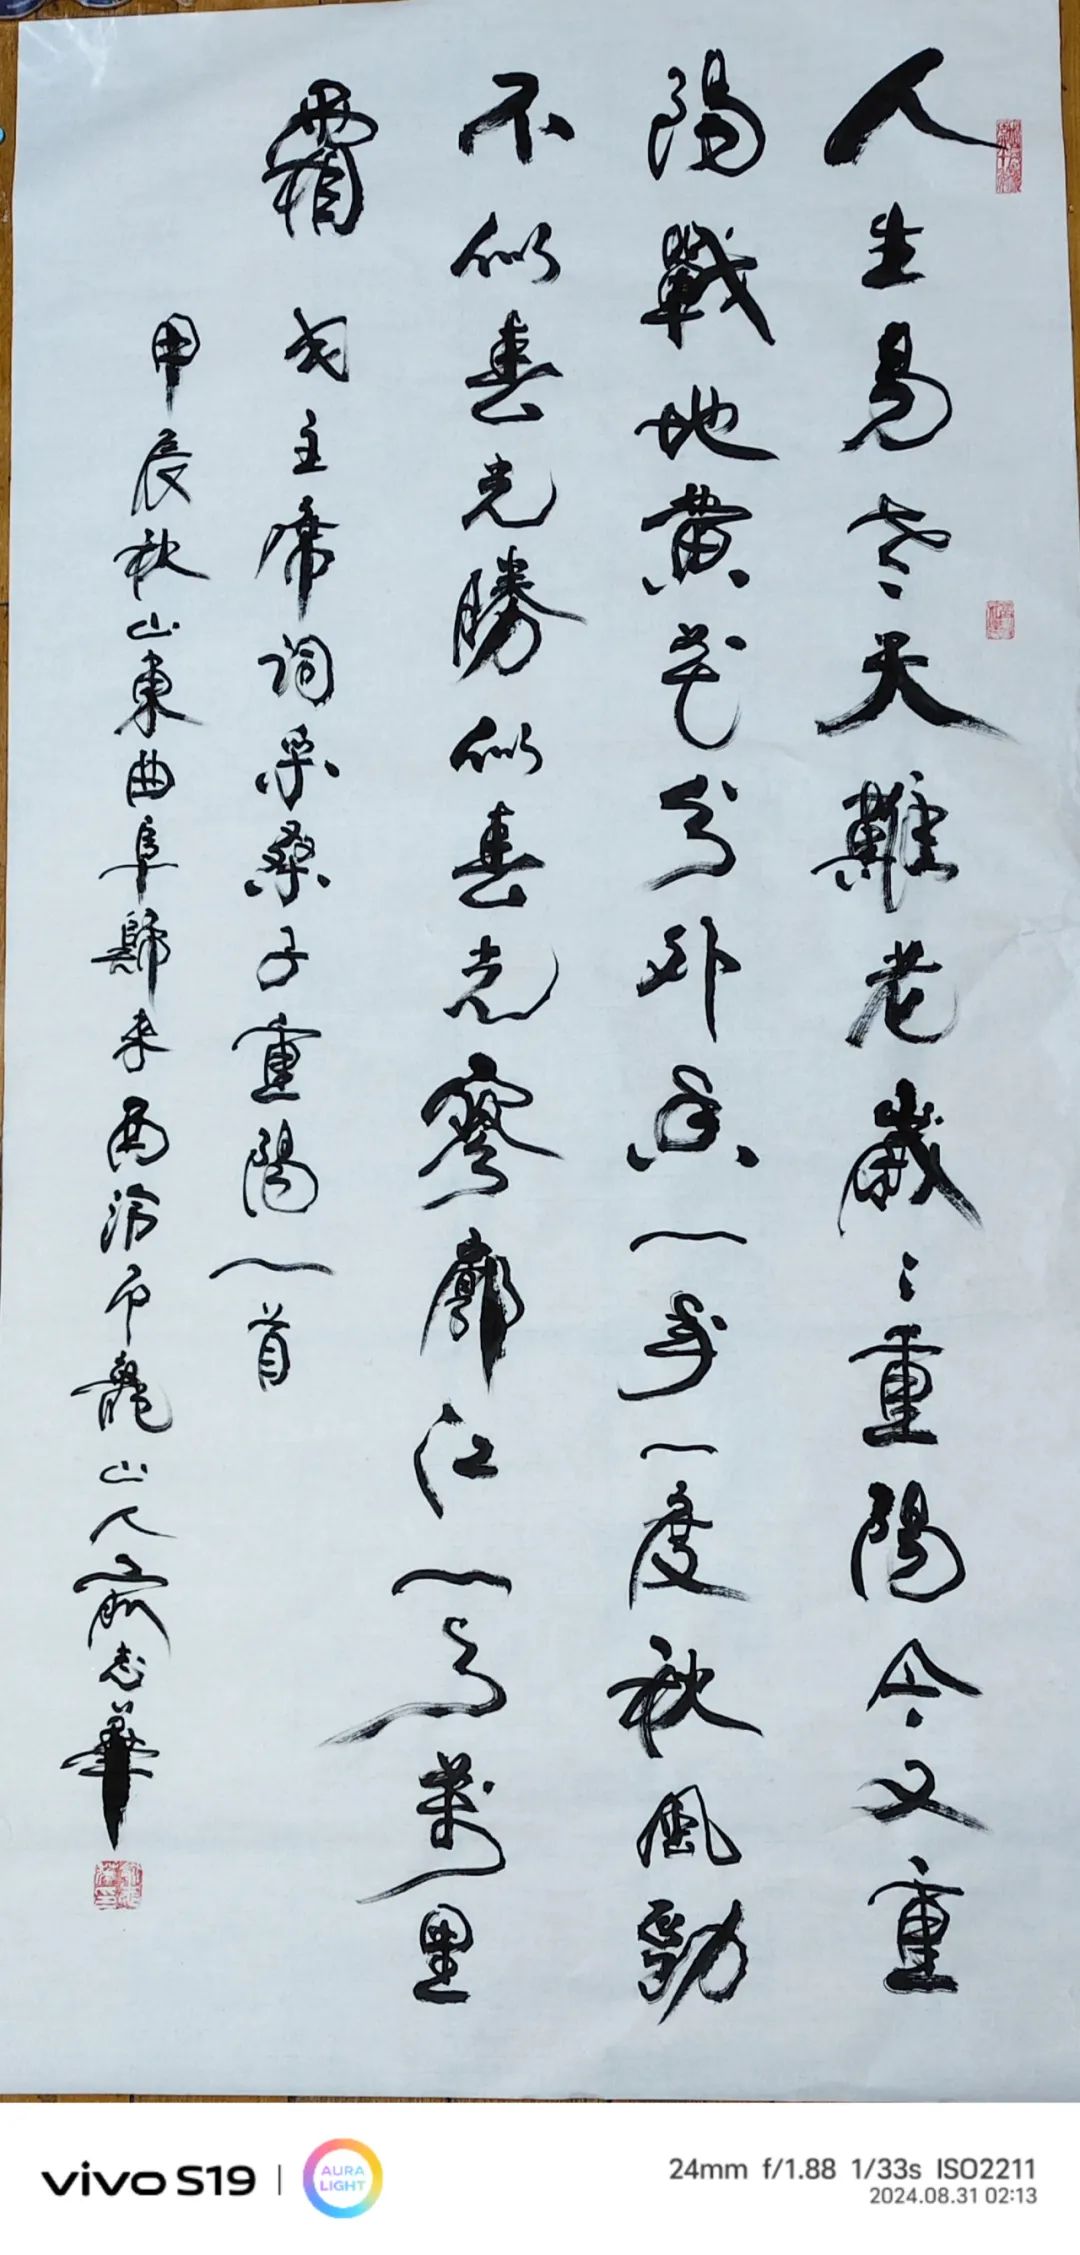 人生易老天難老歲〻重陽今又重
陽戰地黄花分外香一年一度秋風勁
不似春光勝似春光寥廓江天萬里
霜 毛主席詞采桑子重陽一首
甲辰秋山東曲阜歸来西泠印龍山人俞志華
vivo S19 | AURA LIGHT
24mm f/1.88 1/33s ISO2211
2024.08.31 02:13